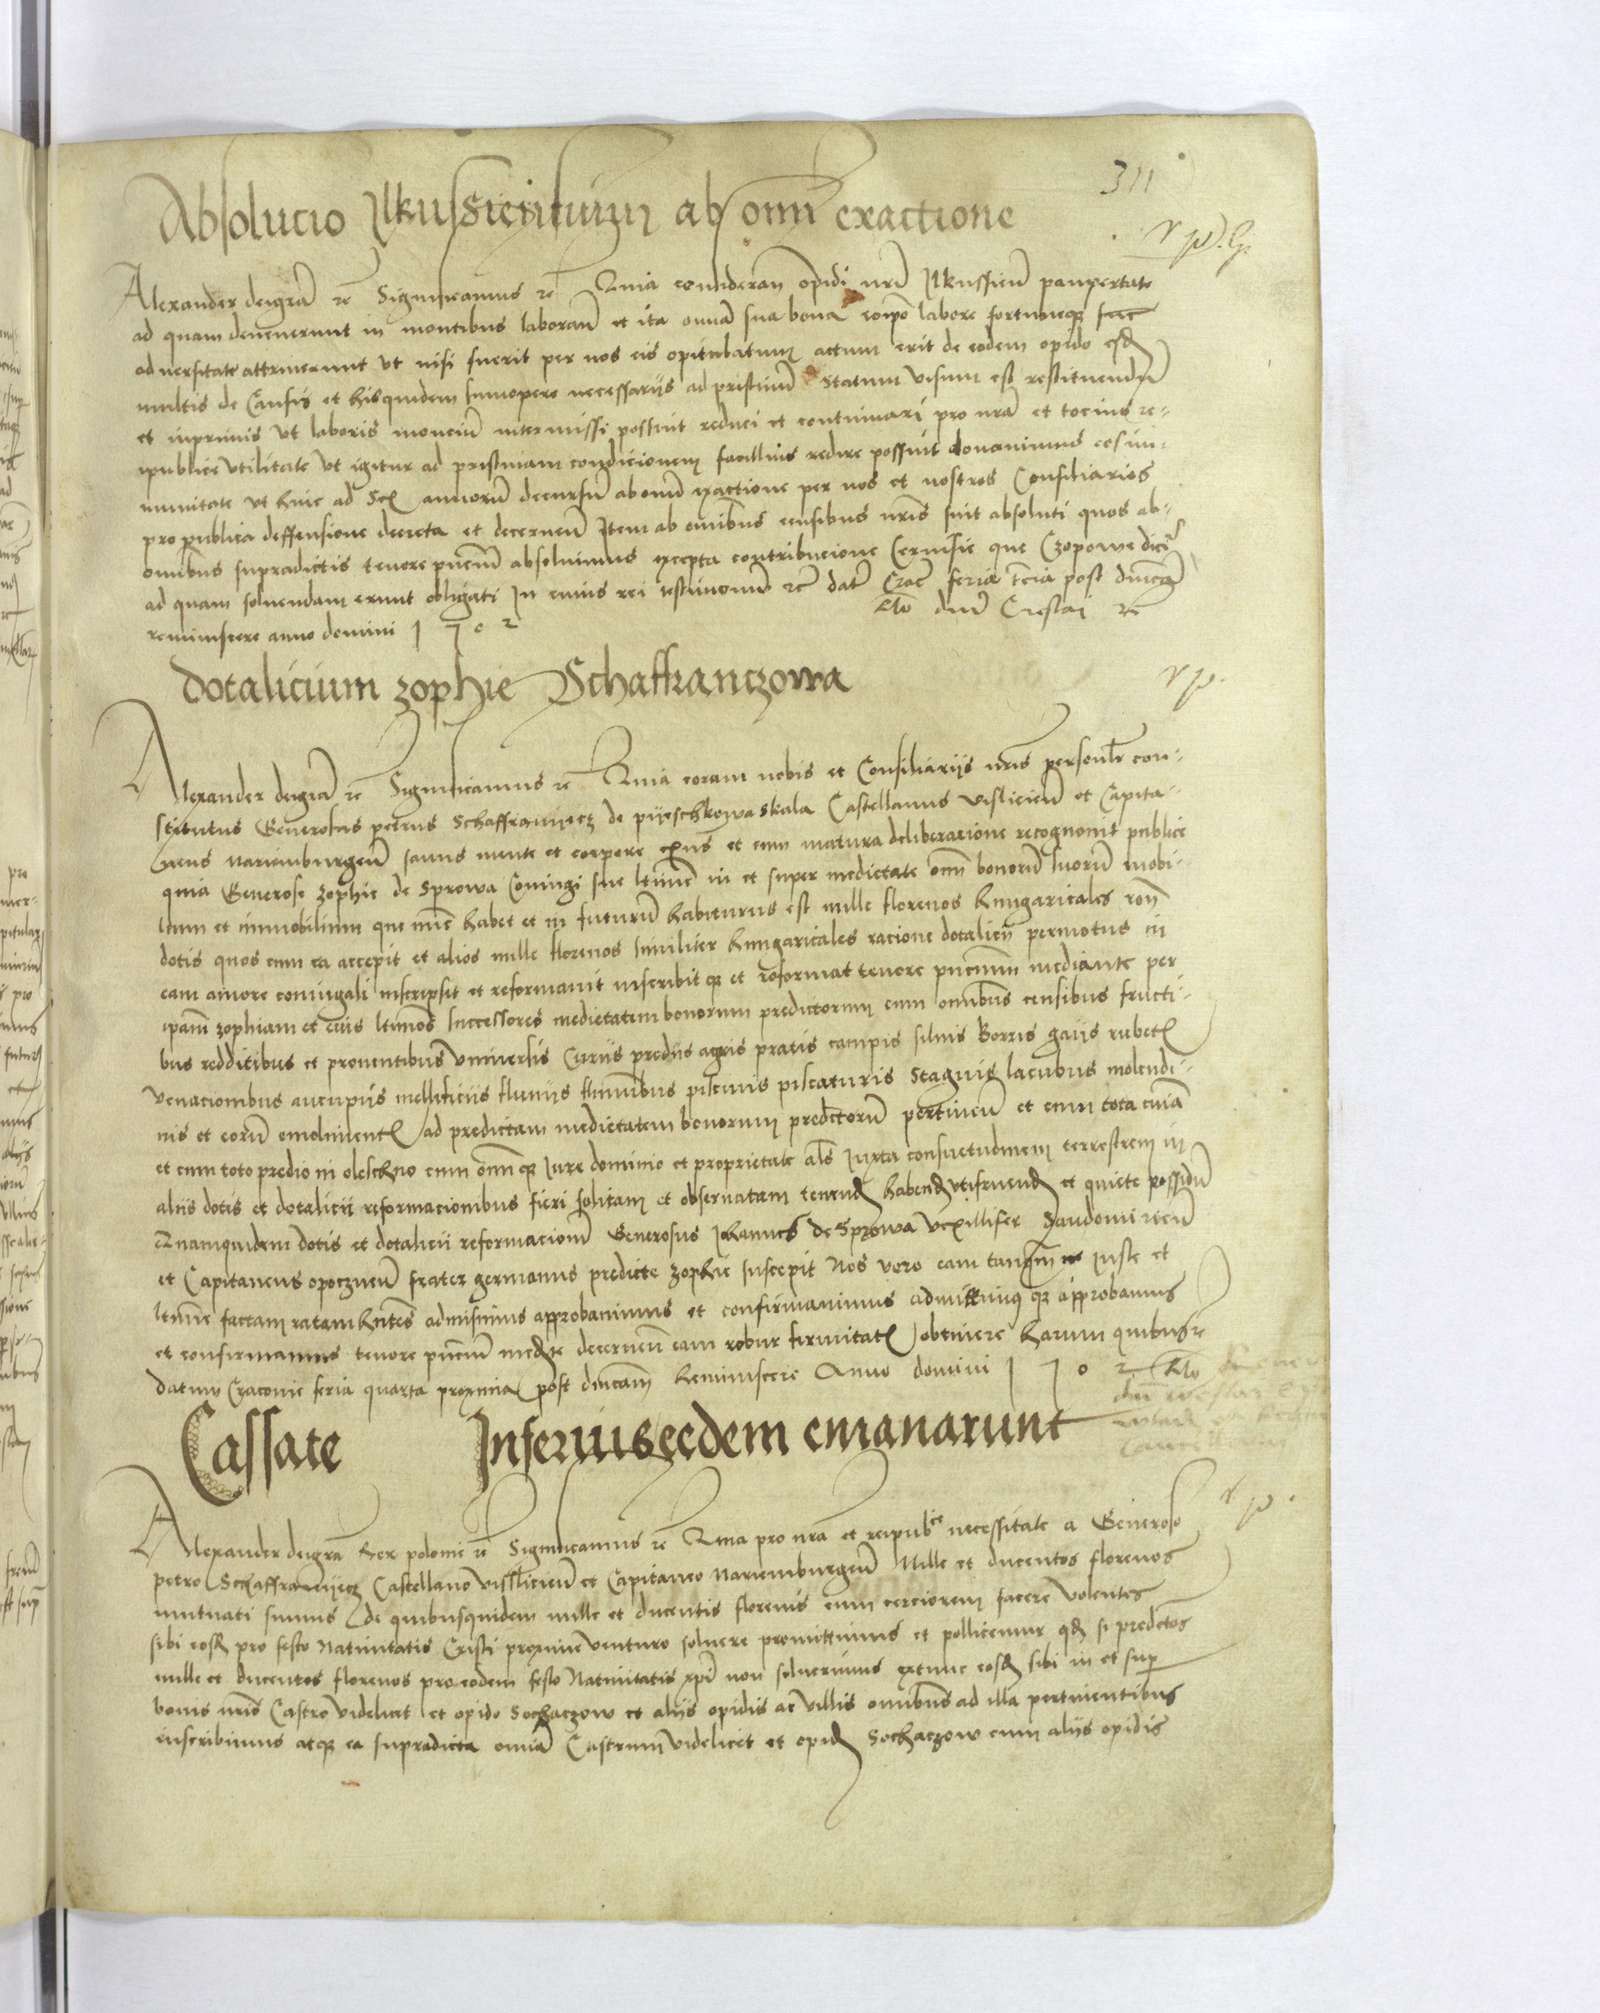 311
Absolucio Ilkussiensium ab omni exactione
Alexander dei gra rc Significamus rc Quia considerans opidi nri Ilkussien paupertate
ad quam devenerunt in montibus laboran et ita omnia sua bona labore fortuneque
adversitate attriverunt ut nisi fuerit per nos eis opitulatum actum erit de eodem opido
multis de Causis et hisquidem summopere necessariis ad pristinum Statum visum est restituendum
et inprimis ut laboris monciu intermissi possint reduci et continuari pro nra et tocius re-
ipublice utilitate ut igitur ad pristinam condicionem facillius redire possint donavimus eos im-
munitate ut huic ad Sex annorum decursum ab omni exactione per nos et nostros Consiliarios
pro publica deffensione decreta et decernen Item ab omnibus censibus nris sint absoluti quos ab
omnibus supradictis tenore pncium absolvimus excepta contribucione Cervisie que Czopowe dicit
ad quam solvendam erunt obligati In cuius rei testimonium rc dat Crac feria tercia post dnicam
reminiscere anno domini 1502 Rlo dni Creslai rc
dotalicium zophie Schaffranczowa
Alexander dei gra rc Significamus rc Quia coram nobis et Consiliariis nris personalr con-
stitutus Generosus petrus Schaffranyecz de pyeschkowaskala Castellanus vislicien et Capita-
neus Mariemburgen sanus mente et corpore exns et cum matura deliberacione recognovit publice
quia Generose zophie de Sprowa Coniugi sue ltime in et super medietate omn bonoru suoru mobi-
lium et immobilium que nunc habet et in futuru habiturus est mille florenos hungaricales ron
dotis quos cum ea accepit et alios mille florenos similiter hungaricales racione dotalicii permotus in
eam amore coniugali inscripsit et reformavit inscribitque et reformat tenore pncium mediante per
ipam zophiam et eius ltimos successores medietatem bonorum predictorum cum omnibus censibus fructi-
bus redditibus et proventibus universis Curiis prediis agris pratis campis silvis Borris gaiis rubetis
venacionibus aucupiis mellificiis fluviis fluminibus piscinis piscaturis Stagnis lacubus molendi-
nis et eoru emolimentis ad predictam medietatem bonorum predictoru pertinen et cum tota curia
et cum toto predio in oleschno cum omni iure dominio et proprietate als iuxta consuetudinem terrestrem in
aliis dotis et dotalicii reformacionibus fieri solitam et observatam tenend habend utifruend et quiete possiden
Quamquidem dotis et dotalicii reformacionem Generosus Johannes de Sprowa vexillifer Sandomirien
et Capitaneus opoczinen frater germanus predicte zophie suscepit Nos vero eam tanqm iuste et
ltime factam ratam hntes admisimus approbavimus et confirmavimus admittimusque approbamus
et confirmamus tenore pncium medte decernen eam robur firmitatis obtinere harum quibus rc
datum Cracovie feria quarta proxima post dnicam Reminiscere Anno domini 1502 Rlo
Cassate Inferius eedem emanarunt
Alexander dei gra Rex polonie rc Significamus rc Quia pro nra et reipubce necessitate a Generoso
petro Schaffranyecz Castellano vislicien et Capitaneo Mariemburgen Mille et ducentos florenos
mutuati sumus de quibusquidem mille et ducentis florenis eum cerciorem facere volentes
sibi eosd pro festo Nativitatis Cristi proxime venturo solvere promittimus et pollicemur qd si predictos
mille et ducentos florenos pro eodem festo Nativitatis xpi non solverimus extunc eosd sibi in et sup
bonis nris Castro videlicet et opido Sochaczow et aliis opidis ac villis omnibus ad illa pertinentibus
inscribimus atque ea supradicta omnia Castrum videlicet et opid Sochaczow cum aliis opidis